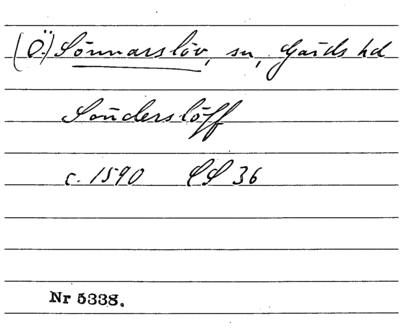 (Ö.) Sönnarslöv, sn, Gärds hd
Sönderslöff
c. 1590 SS 36
Nr 5338.